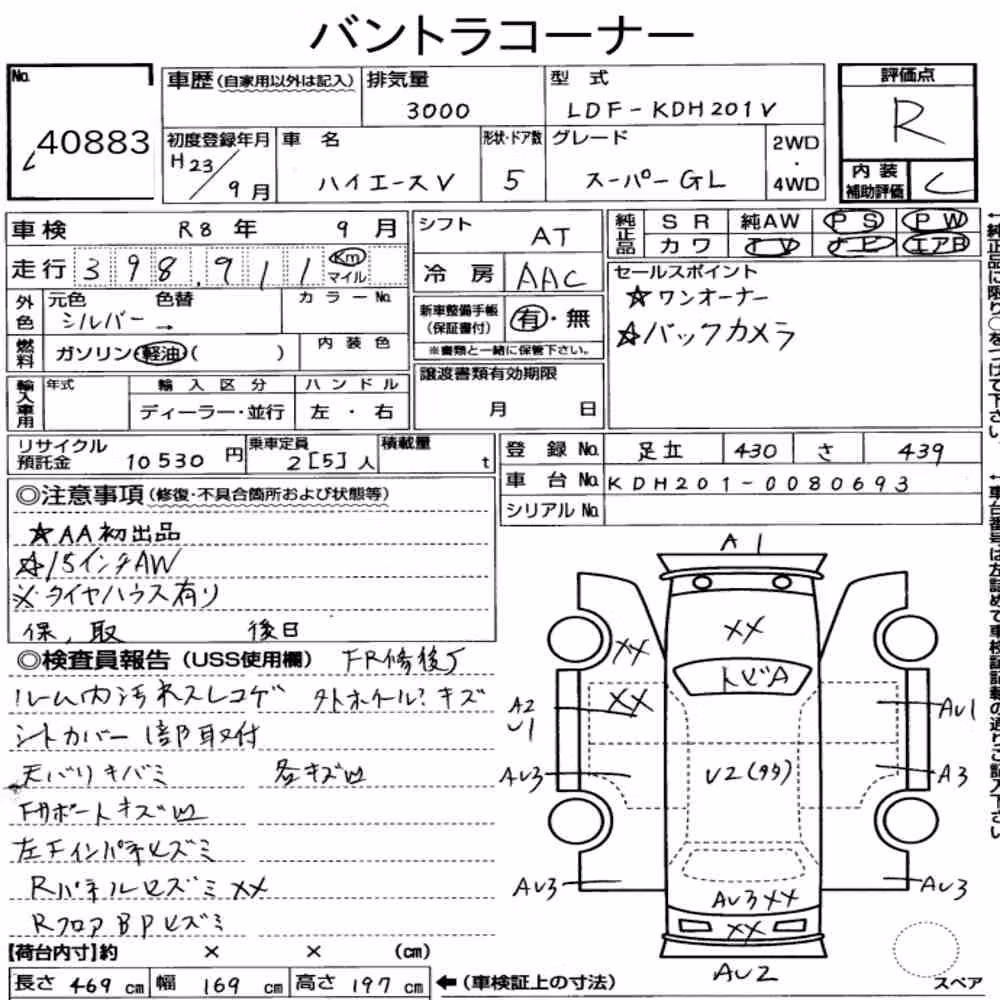 バントラコーナー
No.
40883
車歴(自家用以外は記入)
排気量
3000
型 式
LDF-KDH201V
評価点
R
初度登録年月
H23/9月
車 名
ハイエースV
形状・ドア数
5
グレード
スーパーGL
2WD
・
4WD
内 装
補助評価
C
車検 R8年 9月
走行 398,911 Km マイル
外色
元色 色替
シルバー →
カラーNo.
燃料
ガソリン・軽油( )
内装色
輸入車用
年式
輸入区分
ハンドル
ディーラー・並行
左 ・ 右
シフト
AT
冷 房
AAC
新車整備手帳
(保証書付)
有・無
※書類と一緒に保管下さい。
譲渡書類有効期限
月 日
純正品
SR 純AW PS PW
カワ TV ナビ エアB
セールスポイント
☆ワンオーナー
☆バックカメラ
リサイクル
預託金
10530円
乗車定員
2[5]人
積載量
t
登 録 No. 足立 430 さ 439
車 台 No. KDH201-0080693
シリアル No.
◎注意事項(修復・不具合箇所および状態等)
☆AA初出品
☆15インチAW
※タイヤハウス有り
保、取 後日
◎検査員報告(USS使用欄) FR修後J
ルーム内汚れスレコゲ 外ホイール?キズ
シートカバー1部取付
天バリキバミ 各キズ凹
Fサポートキズ凹
左Fインパネヒズミ
RパネルヒズミXX
RフロアBPヒズミ
【荷台内寸】約 × × (cm)
長さ 469 cm 幅 169 cm 高さ 197 cm
←(車検証上の寸法)
A1
XX
XX
トビA
XX
A2
U1
AU1
AU3
U2(99)
A3
AU3
AU3XX
AU3
XX
AU2
スペア
←純正品に限り○をつけて下さい。
←車台番号は左詰めで車検証記載の通りご記入下さい